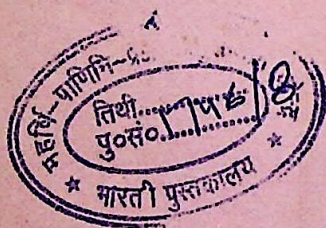 महर्षि-पाणिनि-
तिथी..........
पु०सं०
भारती पुस्तकालय